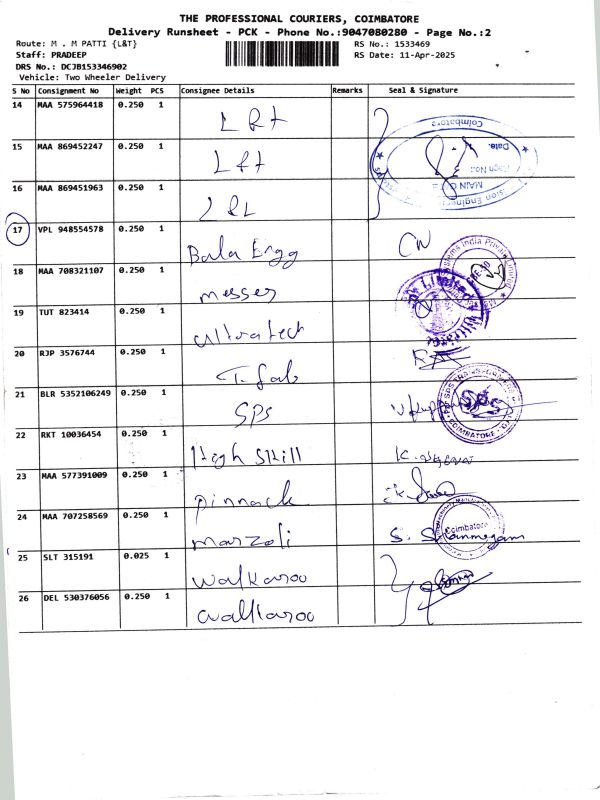 THE PROFESSIONAL COURIERS, COIMBATORE
Delivery Runsheet - PCK - Phone No.:9047080280 - Page No.:2
Route: M . M PATTI {L&T} RS No.: 1533469
Staff: PRADEEP RS Date: 11-Apr-2025
DRS No.: DCJB153346902
Vehicle: Two Wheeler Delivery
S No Consignment No Weight PCS Consignee Details Remarks Seal & Signature
14 MAA 575964418 0.250 1 L&t
Coimbatore
15 MAA 869452247 0.250 1 L&t Date.
16 MAA 869451963 0.250 1
17 VPL 948554578 0.250 1 Bala Engg CN
18 MAA 708321107 0.250 1 messer
19 TUT 823414 0.250 1 ultratech
20 RJP 3576744 0.250 1 T. Gab
21 BLR 5352106249 0.250 1 SPS
COIMBATORE
22 RKT 10036454 0.250 1 High Skill
23 MAA 577391009 0.250 1 pinnack
24 MAA 707258569 0.250 1 marzoli Coimbatore S. Shanmugam
25 SLT 315191 0.025 1 walkaroo
26 DEL 530376056 0.250 1 walkaroo